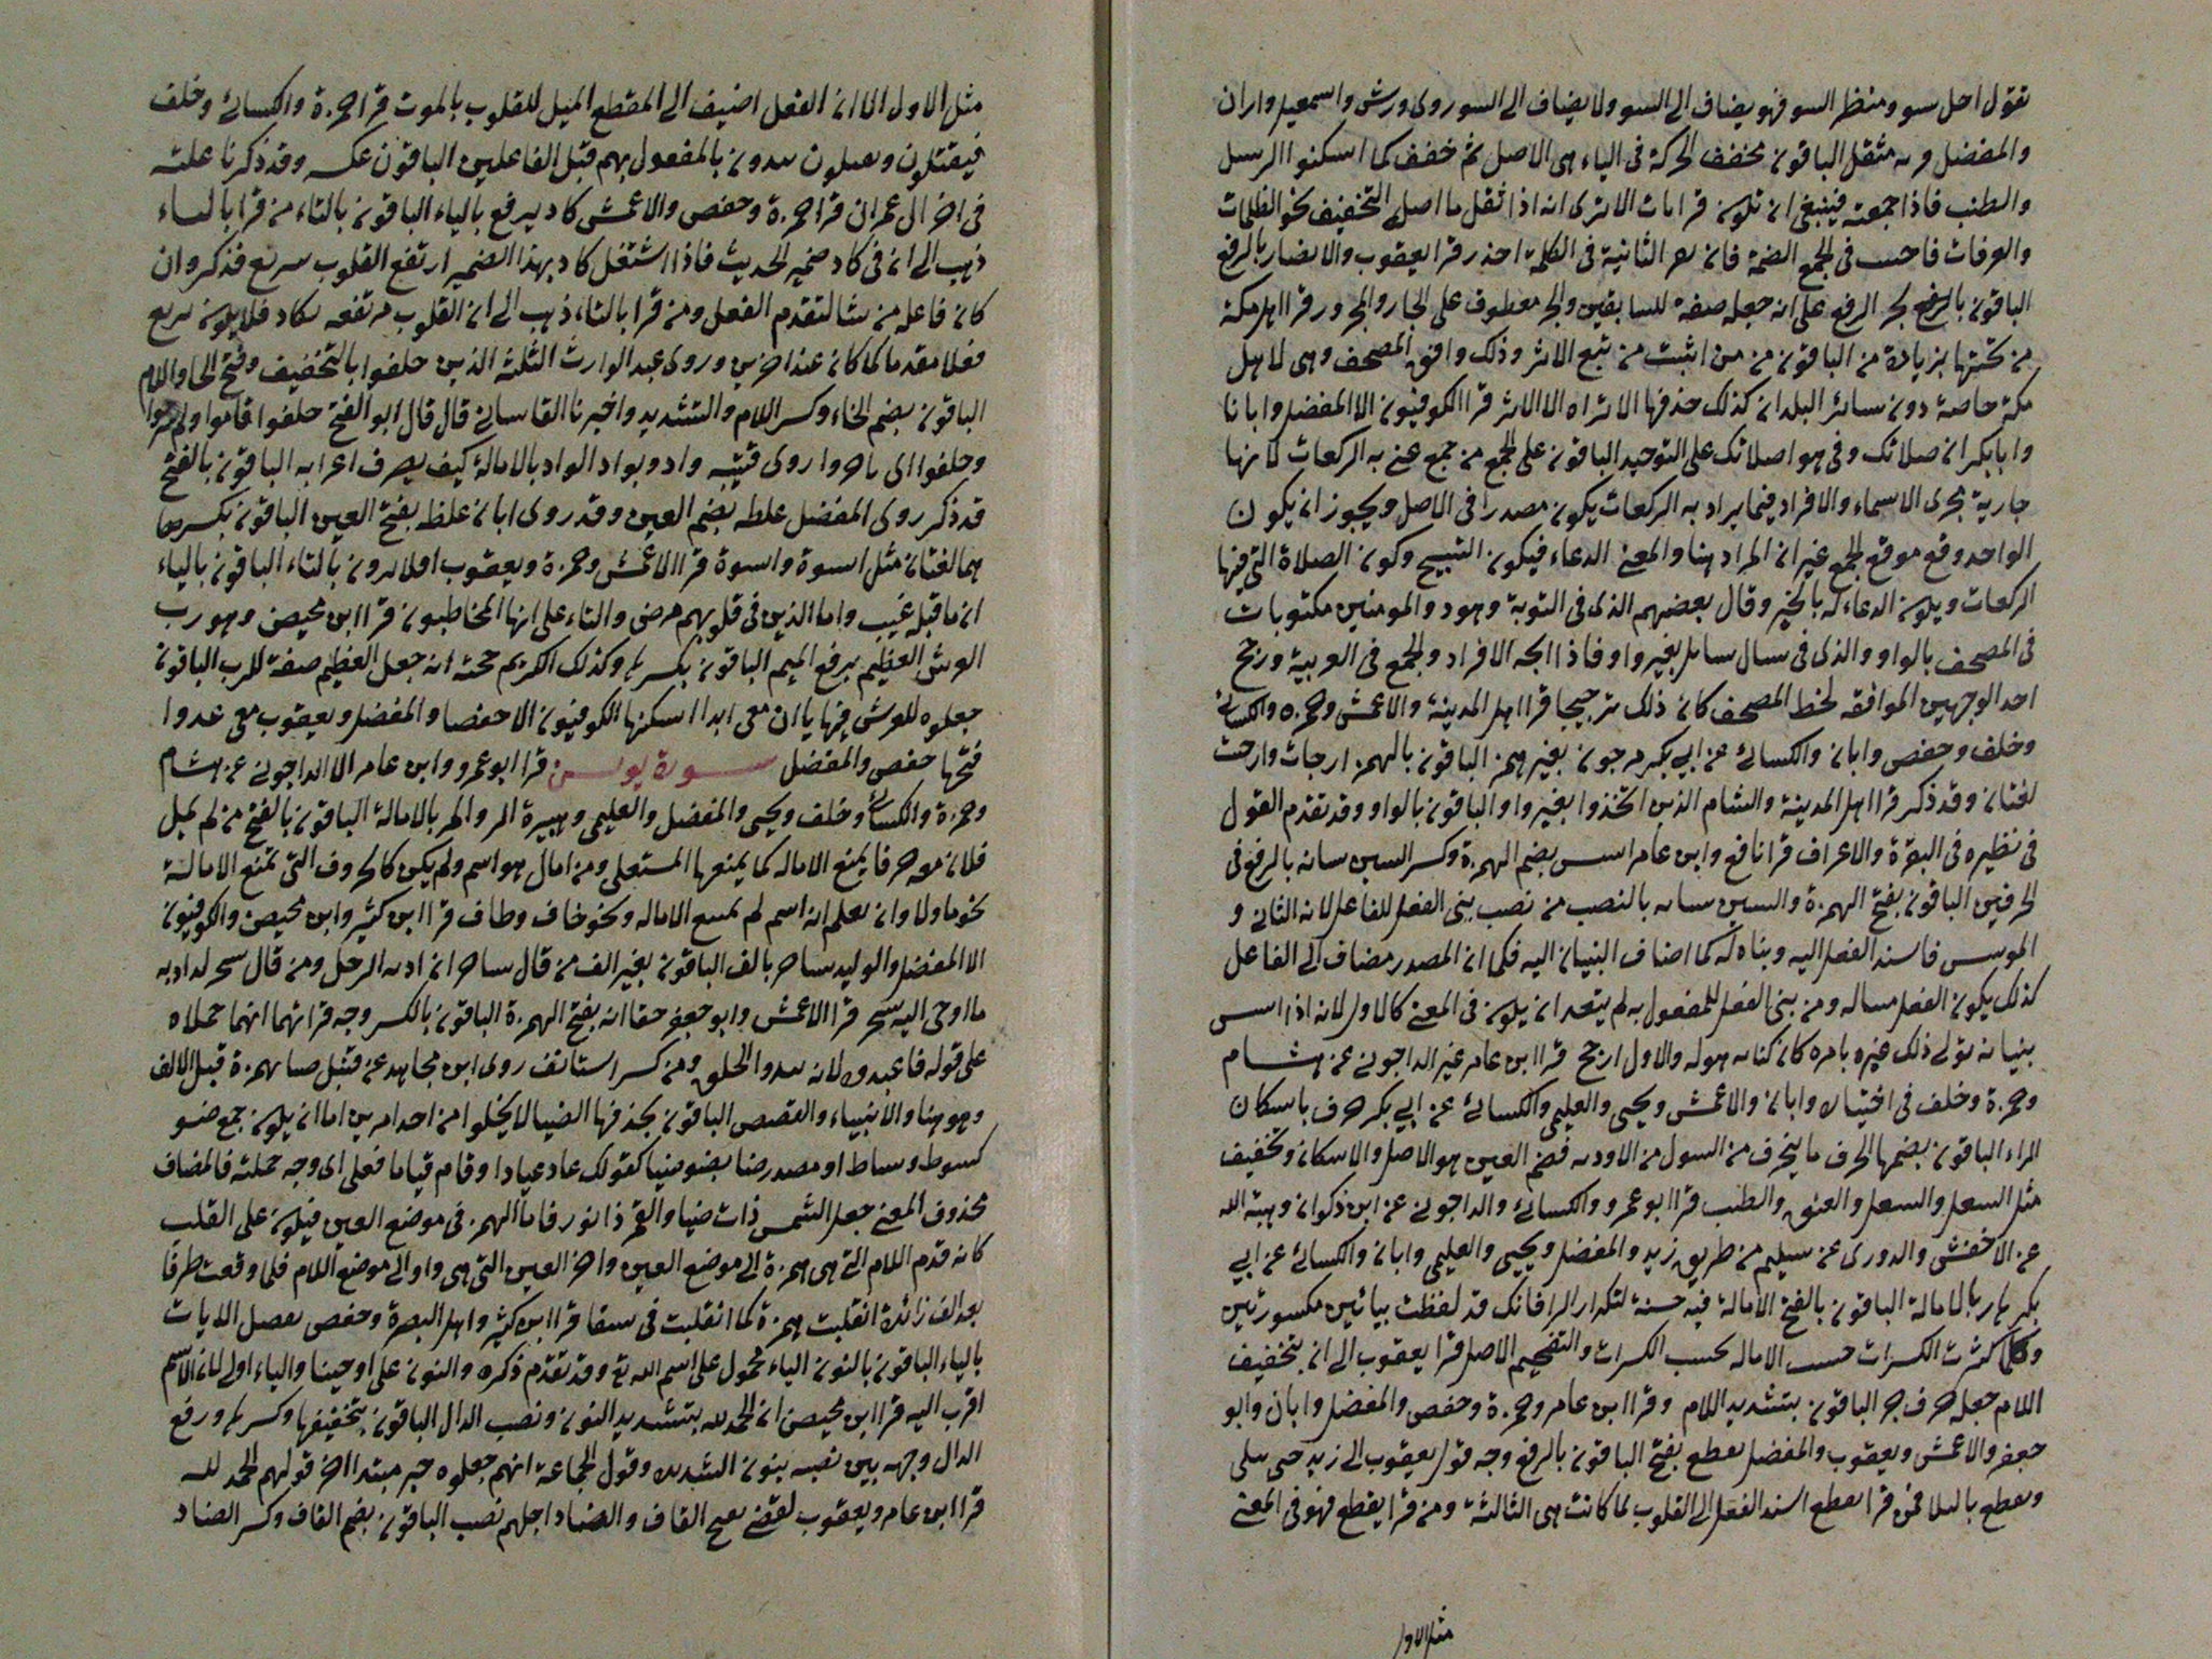 نقول اجل سو ومنظر السو فهو يضاف الى السو ولا يضاف الى السو روى ورش واسمعيل واران
والمفضل قربه مثقل الباقون مخفف الحركة فى الياء هى الاصل ثم خفف كما اسكنوا الرسل
والطنب فاذا جمعته فينبغى ان تكون قرامات الا ترى انه اذا ثقل ما اصله التخفيف نحو الظلمات
والغرفات فاحسب فى الجمع الضمة فانه الثانية فى الكلمة اجذر قرا يعقوب والانصار بالرفع
الباقون بالجر الرفع على انه جعله صفة للسابقين والجر معطوف على الجار والمجرور قرا اهل مكة
من تحتها بزيادة من الباقون من من اثبت من تبع الاثر وذلك وافق المصحف وهى لاهل
مكة خاصة دون سائر البلدان كذلك حذفها الا تراه الا الاثر قرا الكوفيون الا المفضل وابانا
وابا بكر ان صلاتك وفى هو اصلاتك على التوحيد الباقون على الجمع من جمع عنى به الركعات لانها
جارية مجرى الاسماء والافراد فيما يراد به الركعات يكون مصدرا فى الاصل ويجوز ان يكون
الواحد وقع موقع الجمع غير ان المراد هنا والمعنى الدعاء فيكون التسبيح وكون الصلاة التى فيها
الركعات ويكون الدعاء له بالخير وقال بعضهم الذى فى التوبة وهود والمومنين مكتوبات
فى المصحف بالواو والذى فى سال سايل بغير واو فاذا اتجه الافراد والجمع فى العربية ورجح
احد الوجهين الموافقه لخط المصحف كان ذلك ترجيحا قرا اهل المدينة والاعمش وحمزه والكسائى
وخلف وحفص وابان والكسائى عن ابى بكر مرجون بغير همز الباقون بالهمز ارجات وارجت
لغتان وقد ذكر قرا اهل المدينة والشام الذين اتخذوا بغير واو الباقون بالواو وقد تقدم القول
فى نظيره فى البقرة والاعراف قرا نافع وابن عامر اسس بضم الهمزة وكسر السين بنيانه بالرفع فى
الحرفين الباقون بفتح الهمزة والسين بنيانه بالنصب من نصب بنى الفعل للفاعل لانه الثانى و
الموسس فاسند الفعل اليه وبناه له كما اضاف البنيان اليه فكما ان المصدر مضاف الى الفاعل
كذلك يكون الفعل مساله ومن بنى الفعل للمفعول به لم يتعد ان يكون فى المعنى كالاول لانه اذا اسس
بنيانه تولى ذلك غيره بامره كان كبنائه هو له والاول ارجح قرا ابن عامر غير الداجونى عن هشام
وحمزة وخلف فى اختياره وابان والاعمش ويحيى والعليمى والكسائى عن ابى بكر جرف باسكان
الراء الباقون بضمها الجرف ما يجرف من السيول من الاودية فضم العين هو الاصل والاسكان وتخفيف
مثل الشغل والشغل والعنق والطنب قرا ابو عمرو والكسائى والداجونى عن ابن ذكوان وهبة الله
عن الاخفش والدورى عن سليم من طريق زيد والمفضل ويحيى والعليمى وابان والكسائى عن ابى
بكر هار بالامالة الباقون بالفتح الامالة فيه حسنة لتكرار الرا فانك قد لفظت بيائين مكسورتين
وكلما كثرت الكسرات حسنت الاماله بحسب الكسرات والتفخيم الاصل قرا يعقوب الى ان بتخفيف
اللام جعله حرف جر الباقون بتشديد اللام وقرا ابن عامر وحمزة وحفص والمفضل وابان وابو
جعفر والاعمش ويعقوب والمفضل تقطع بفتح الباقون بالرفع وجه قول يعقوب الى زيد حتى يبلى
وتقطع بالبلا فمن قرا تقطع اسند الفعل الى القلوب لما كانت هى الثالثة ومن قرا يقطع فهو فى المعنى
مثل الاول
مثل الاول الا ان الفعل اضيف الى المقطع الميل للقلوب بالموت قرا حمزة والكسائى وخلف
فيقتلون ويقتلون يبدون بالمفعول بهم قبل الفاعلين الباقون عكسه وقد ذكرنا علته
فى اخر ال عمران قرا حمزة وحفص والاعمش كاد يرفع بالياء الباقون بالتاء من قرا بالياء
ذهب الى ان فى كاد ضمير الحديث فاذا اشتغل كاد بهذا الضمير ارتفع القلوب يرفع فذكر وان
كان فاعله مؤنثا لتقدم الفعل ومن قرا بالتاء ذهب الى ان القلوب مرتفعه بكاد فلا يكون يرفع
فعلا مقدما كما كان عند اخرين وروى عبد الوارث الثلثه الذين خلفوا بالتخفيف وفتح الخا واللام
الباقون بضم الخاء وكسر اللام والتشديد واخبرنا القاسانى قال قال ابو الفتح خلفوا اقاموا ولم يخرجوا
وخلفوا اى ناخروا روى قتيبه واد وبواد الواد بالامالة كيف يصرف اعرابه الباقون بالفتح
قد ذكر روى المفضل غلظه بضم العين وقد روى ابان غلظ بفتح العين الباقون بكسرها
هما لغتان مثل اسوة واسوة قرا الاعمش وحمزة ويعقوب اولا ترون بالتاء الباقون بالياء
ان ما قبله غيب واما الذين فى قلوبهم مرض والتاء على انها المخاطبون قرا ابن محيصن وهو رب
العرش العظيم برفع الميم الباقون بكسرها وكذلك الكريم حجته انه جعل العظيم صفة للرب الباقون
جعلوه للعرش فيها ياان معى ابدا اسكنها الكوفيون الا حفصا والمفضل ويعقوب معى عدوا
فتحها حفص والمفضل سورة يونس قرا ابو عمرو وابن عامر الا الداجونى عن هشام
وحمزة والكسائى وخلف ويحيى والمفضل والعليمى وهبيرة الر والمر بالامالة الباقون بالفتح من لم يمل
فلانه حرف فا يمنع الاماله كما يمنعها المستعلى ومن امال هو اسم ولم يكن كالحروف التى تمنع الامالة
نحو ما ولا وان يعلم انه اسم لم تمتنع الاماله ونحو خاف وطاف قرا ابن كثير وابن محيصن والكوفيون
الا المفضل والوليد ساحر بالف الباقون بغير الف من قال ساحر اراد به الرجل ومن قال سحر اراد به
ما اوحى اليه سحر قرا الاعمش وابو جعفر حقا انه بفتح الهمزة الباقون بالكسر وجه قراتهما انهما حملاه
على قوله فاعبدوه لانه يبدوا الخلق ومن كسر استانف روى ابن مجاهد عن قنبل ضياء بهمزة قبل الالف
وهو هنا والانبياء والقصص الباقون بحذفها الضيا لا يخلوا من احد امرين اما ان يكون جمع ضو
كسوط وسياط او مصدر ضا يضو ضيا كقولك عاد عيادا وقام قياما فعلى اى وجه حملته فالمضاف
محذوف المعنى جعل الشمس ذات ضيا والقمر ذا نور فاما الهمز فى موضع العين فيكون على القلب
كانه قدم اللام التى هى همزة الى موضع العين واخر العين التى هى واو الى موضع اللام فلما وقعت طرفا
بعد الف زائدة انقلبت همزة كما انقلبت فى سقا قرا ابن كثير واهل البصرة وحفص يفصل الايات
بالياء الباقون بالنون الياء محمول على اسم الله تع وقد تقدم ذكره والنون على اوحينا والياء اولى لان الاسم
اقرب اليه قرا ابن محيصن ان الحمد لله بتشديد النون ونصب الدال الباقون بتخفيفها وكسرها ورفع
الدال وجهه بين نصبه بنون الشديده وقول الجماعة انهم جعلوه خبر مبتدا اخر قولهم الحمد لله
قرا ابن عامر ويعقوب لقضى بفتح القاف والضاد اجلهم نصب الباقون بضم القاف وكسر الضاد